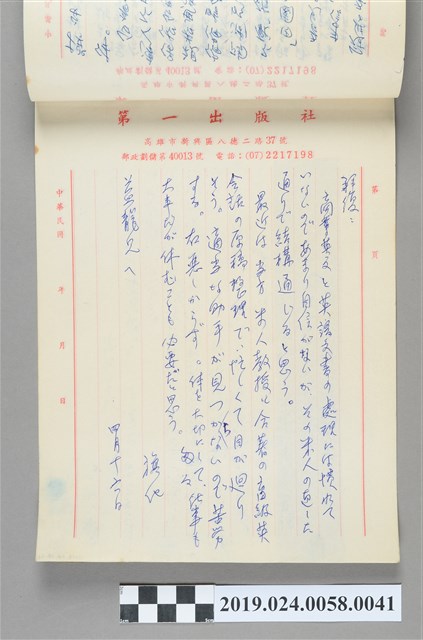 第一出版社
高雄市新興區八德二路37號
郵政劃撥第40013號 電話：(07)2217198
第 頁
拝復：
商業英文と英語文書の処理には慣れて
いないのであまり自信がないが、その米人の直した
通りで結構通じると思う。
最近は 当方 米人教授と合著の高級英
会話の原稿整理で、忙しくて目が廻り
そう。適当な助手が見つからないので苦労
する。お悪しからず。体を大切にして、 仕事も
大事だが休むことも必要だと思う。
旗化
四月十六日
益龍兄へ
中華民國 年 月 日
2019.024.0058.0041